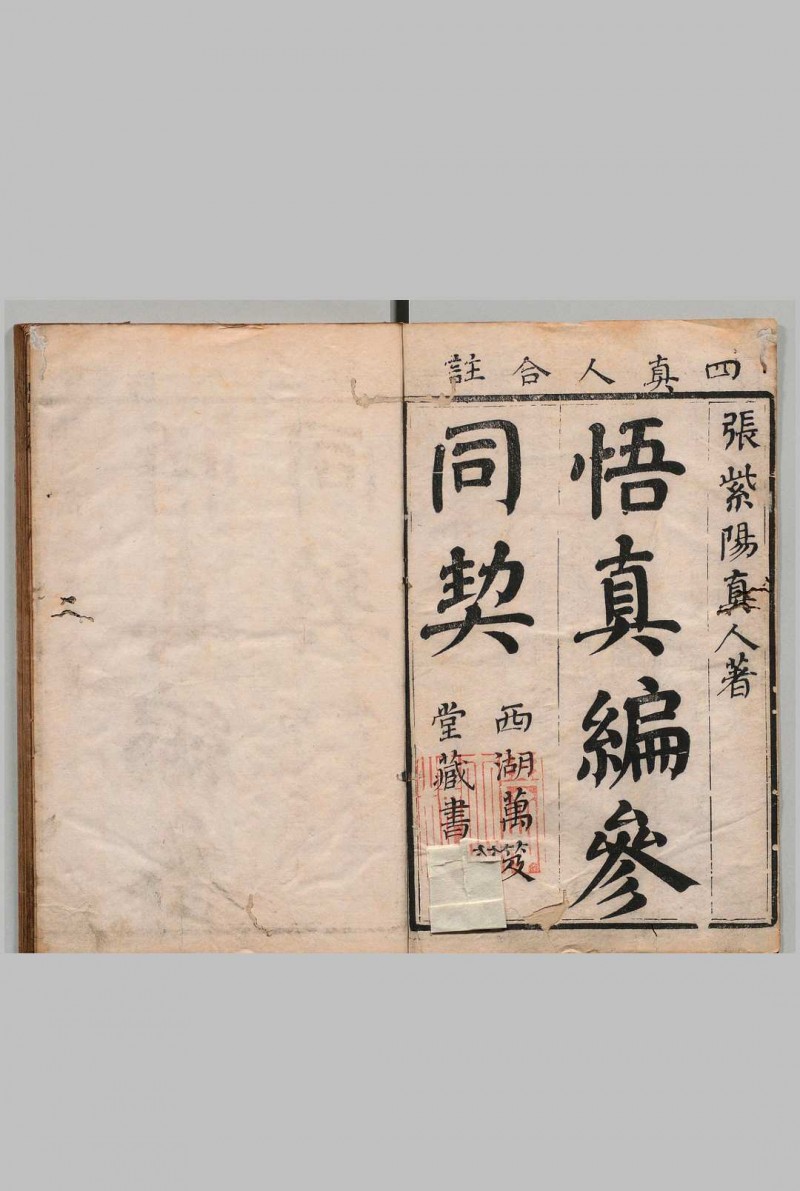 四真人合註
張紫陽真人著
悟真編參
同契
西湖萬笈
堂藏書